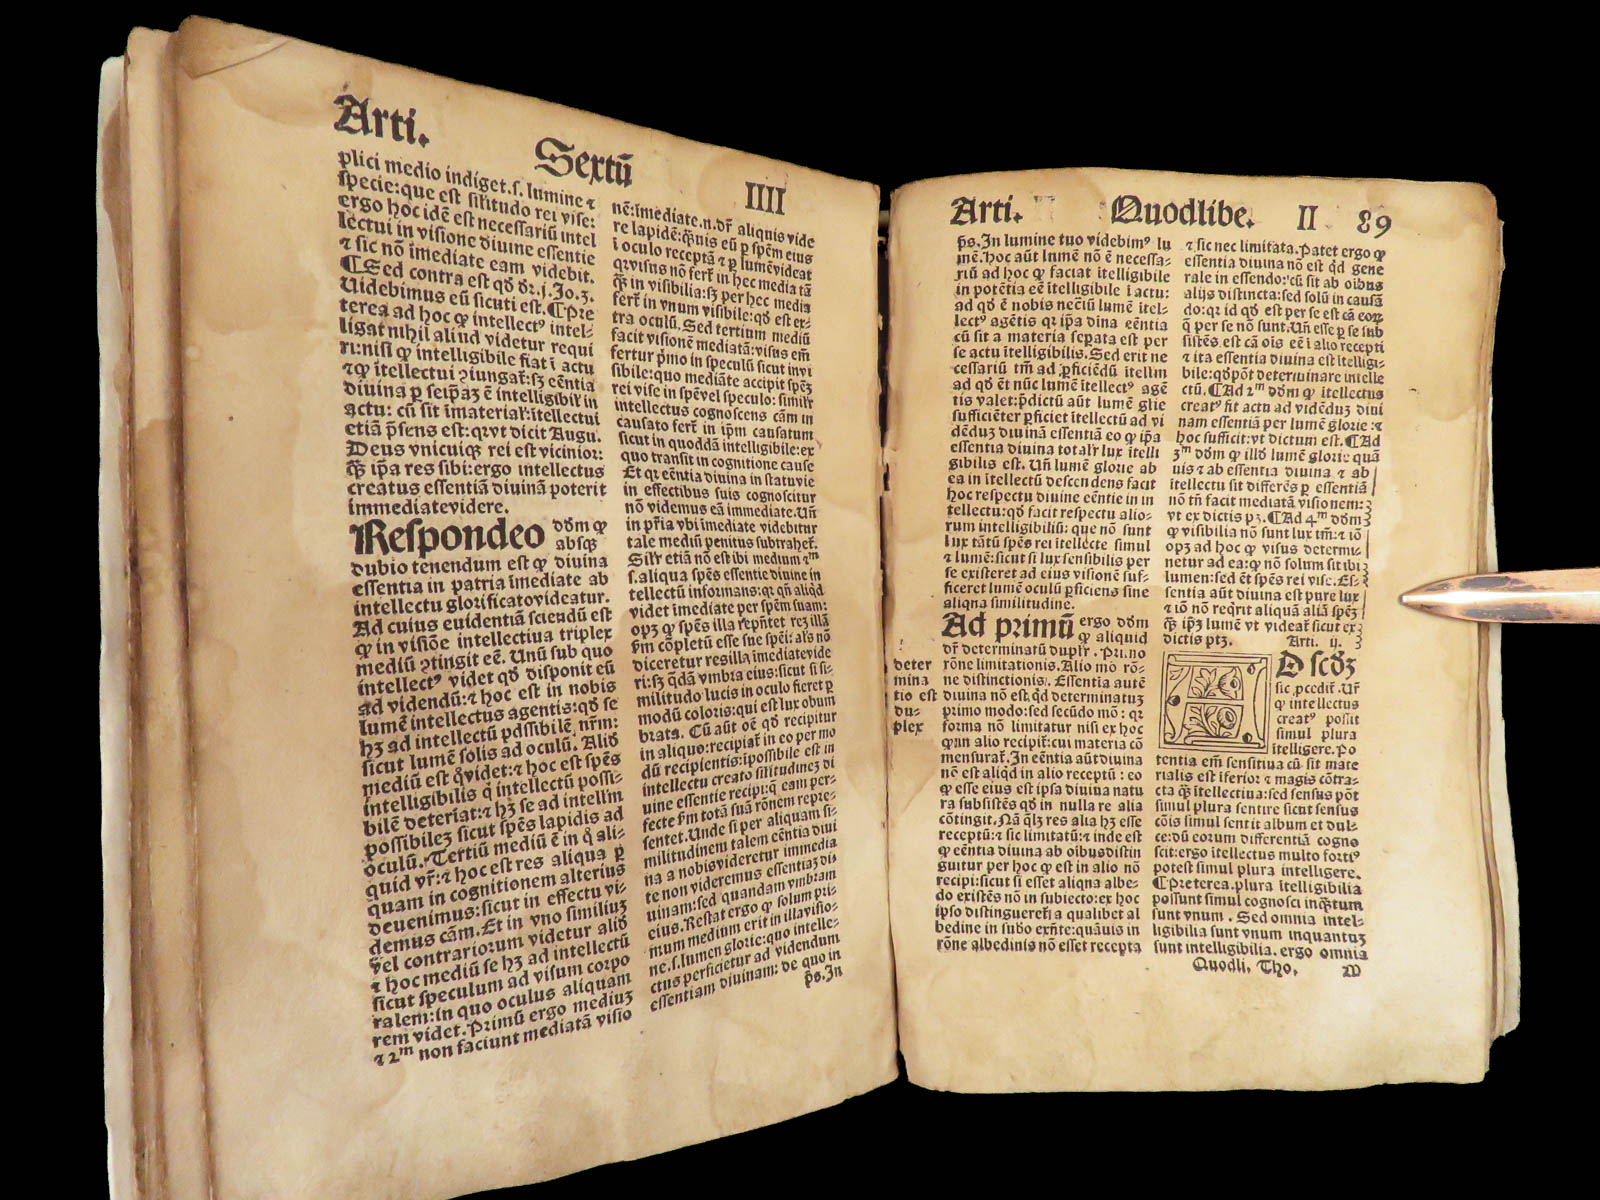 Arti. Sextū IIII
plici medio indiget.s. lumine ⁊
specie:que est silitudo rei vise:
ergo hoc idē est necessariū intel
lectui in visione diuine essentie
⁊ sic nō imediate eam videbit.
¶Sed contra est qd dr.j.Jo.3.
Uidebimus eū sicuti est.¶Pre
terea ad hoc ꝙ intellectꝰ intel-
ligat nihil aliud videtur requi
ri:nisi ꝙ intelligibile fiat ī actu
⁊ꝙ ītellectui ↄiungat̄:sꝫ eēntia
diuina ꝑ seip̄aꝫ ē intelligibil' in
actu: cū sit īmaterial':ītellectui
etiā p̄sens est:qꝛvt dicit Augu.
Deus vnicuiqꝫ rei est vicinior:
q̄ꝫ ip̄a res sibi:ergo intellectus
creatus essentiā diuinā poterit
immediatevidere.
Respondeo dd̄m ꝙ
absqꝫ
dubio tenendum est ꝙ diuina
essentia in patria īmediate ab
intellectu glorificatovideatur.
Ad cuius euidentiā sciendū est
ꝙ in visiōe intellectiua triplex
mediū ↄtingit eē. Unū sub quo
intellectꝰ videt qd disponit eū
ad videndū:⁊ hoc est in nobis
lumē intellectus agentis:qd se
hꝫ ad intellectū possibilē nr̄m:
sicut lumē solis ad oculū. Aliud
mediū est q̊videt:⁊ hoc est spēs
intelligibilis q̄ intellectū possi-
bilē deteriat:⁊ hꝫ se ad intell'm
possibileꝫ sicut spēs lapidis ad
oculū. Tertiū mediū ē in q̊ ali-
quid vr̄:⁊ hoc est res aliqua ꝑ
quam in cognitionem alterius
deuenimus:sicut in effectu vi-
demus cām.Et in vno similiuꝫ
vel contrariorum videtur aliud
⁊ hoc mediū se hꝫ ad intellectū
sicut speculum ad visum corpo
ralem:in quo oculus aliquam
rem videt.Primū ergo mediuꝫ
⁊ 2ᵐ non faciunt mediatā visio
nē:īmediate.n.dr̄ aliquis vide
re lapidē:q̄uis eū ꝑ spēm eius
ī oculo receptā ⁊ ꝑ lumēvideat
qꝛvisus nō fert̄ in hec media tā
q̄ꝫ in visibilia:sꝫ per hec media
fert̄ in vnum visibile:qd est ex-
tra oculū. Sed tertium mediū
facit visionē mediatā:visus em̄
fertur p̄mo in speculū sicut invi
sibile:quo mediāte accipit spēꝫ
rei vise in spēvel speculo: similr̄
intellectus cognoscens cām in
causato fert̄ in ip̄m causatum
sicut in quoddā intelligibile:ex
quo transit in cognitione cause
Et qꝛ eēntia diuina in statuvie
in effectibus suis cognoscitur
nō videmus eā immediate.Un̄
in pr̄ia vbi īmediate videbitur
tale mediū penitus subtrahet̄.
Silr̄ etiā nō est ibi medium 2ᵐ
s.aliqua spēs essentie diuine in
tellectū informans:qꝛ qn̄ aliqd
videt̄ īmediate per spēm suam:
opꝫ ꝙ spēs illa rep̄ntet reꝫ illā
fm̄ cōpletū esse sue spēi: al's nō
diceretur resilla īmediatevide
ri:sꝫ q̄dā vmbra eius:sicut si si-
militudo lucis in oculo fieret ꝑ
modū coloris:qui est lux obum
brata. Cū aūt oē qd recipitur
in aliquo:recipiat̄ in eo per mo
dū recipientis:īpossibile est in
intellectu creato silitudineꝫ di
uine essentie recipi:q̄ eam per-
fecte fm̄ totā suā rōnem repre-
sentet.Unde si per aliquam si-
militudinem talem eēntia diui
na a nobisvideretur immedia
te non videremus essentiaꝫ di-
uinam:sed quandam vmbram
eius.Restat ergo ꝙ solum pri-
mum medium erit in illavisio-
ne.s.lumen glorie:quo intelle-
ctus perficietur ad videndum
essentiam diuinam: de quo in
p̄s.In
Arti. Quodlibe. II 89
p̄s.In lumine tuo videbimꝰ lu
mē.hoc aūt lumē nō ē necessa-
riū ad hoc ꝙ faciat ītelligibile
in potētia eē ītelligibile ī actu:
ad qd ē nobis necīū lumē ītel-
lectꝰ agētis qꝛ ip̄a dīna eēntia
cū sit a materia sepata est per
se actu ītelligibilis.Sed erit ne
cessariū tm̄ ad ꝑficiēdū itellm
ad qd ēt nūc lumē ītellectꝰ agē
tis valet:p̄dictū aūt lumē glīe
sufficiēter ꝑficiet ītellectū ad vi
dēduꝫ diuinā essentiā eo ꝙ ip̄a
essentia diuina total'r lux ītelli
gibilis est. Un̄ lumē glorie ab
ea in ītellectū descendens facit
hoc respectu diuine eēntie in in
tellectu:qd facit respectu alio-
rum intelligibiliū: que nō sunt
lux tātū spēs rei itellecte simul
⁊ lumē:sicut si lux sensibilis per
se existeret ad eius visionē suf-
ficeret lumē oculū ꝑficiens sine
aliqna similitudine.
Ad primū ergo dd̄m
ꝙ aliquid
dr̄ determinatū duplr̄. Pri.no
rōne limitationis.Alio mō rō-
ne distinctionis. Essentia autē
diuina nō est.qd determinatuꝫ
primo modo:sed secūdo mō: qꝛ
forma nō limitatur nisi ex hoc
ꝙin alio recipit̄:cui materia cō
mensurat̄.In eēntia aūt diuina
nō est aliqd in alio receptū : eo
ꝙ esse eius est ipsa diuina natu
ra subsistēs qd in nulla re alia
cōtingit.Nā qlꝫ res alia hꝫ esse
receptū:⁊ sic limitatū:⁊ inde est
ꝙ eēntia diuina ab oibusdistin
guitur per hoc ꝙ est in alio nō
recipi:sicut si esset aliqna albe-
do existēs nō in subiecto:ex hoc
ipso distingueret̄ a qualibet al
bedine in subo exn̄te:quāuis in
rōne albedinis nō esset recepta
deter
mina
tio est
du-
plex
⁊ sic nec limitata.Patet ergo ꝙ
essentia diuina nō est qd gene
rale in essendo:cū sit ab oibus
alijs distincta:sed solū in causā
do:qꝛ id qd est per se est cā eoꝝ
q̄ per se nō sunt.Un̄ esse ꝑ se sub
sistēs.est cā oīs eē ī alio recepti
⁊ ita essentia diuina est ītelligi-
bile:qdpōt determinare intelle
ctū.¶Ad 2ᵐ dd̄m ꝙ ītellectus
creatꝰ fit actu ad vidēduꝫ diui
nam essentiā per lumē glorie :⁊
hoc sufficit:vt dictum est.¶Ad
3ᵐ dd̄m ꝙ illd lumē glorie quā
uis ⁊ ab essentia diuina ⁊ ab
ītellectu sit differēs ꝑ essentiā
nō tn̄ facit mediatā visionem:
vt ex dictis pꝫ.¶Ad 4ᵐ dd̄m
ꝙ visibilia nō sunt lux tm̄:⁊ iō
opꝫ ad hoc ꝙ visus determi-
netur ad ea:ꝙ nō solum sit ibi
lumen:sed ēt spēs rei vise.Es-
sentia aūt diuina est pure lux
⁊ iō nō reqrit aliquā aliā spēꝫ
q̄ꝫ ip̄ꝫ lumē vt videat̄ sicut ex
dictis ptꝫ. Arti. ij.
D scd̄ꝫ
sic ꝓcedit̄.Ur̄
ꝙ intellectus
creatꝰ possit
simul plura
itelligere.Po
tentia em̄ sensitiua cū sit mate
rialis est īferior ⁊ magis cōtra-
cta q̄ꝫ ītellectiua:sed sensus pōt
simul plura sentire sicut sensus
cōis simul sentit album et dul-
ce:dū eorum differentiā cogno
scit:ergo itellectus multo fortiꝰ
potest simul plura intelligere.
¶Preterea.plura ītelligibilia
possunt simul cognosci inq̄tum
sunt vnum . Sed omnia intel-
ligibilia sunt vnum inquantuꝫ
sunt intelligibilia. ergo omnia
Quodli. Tho. M